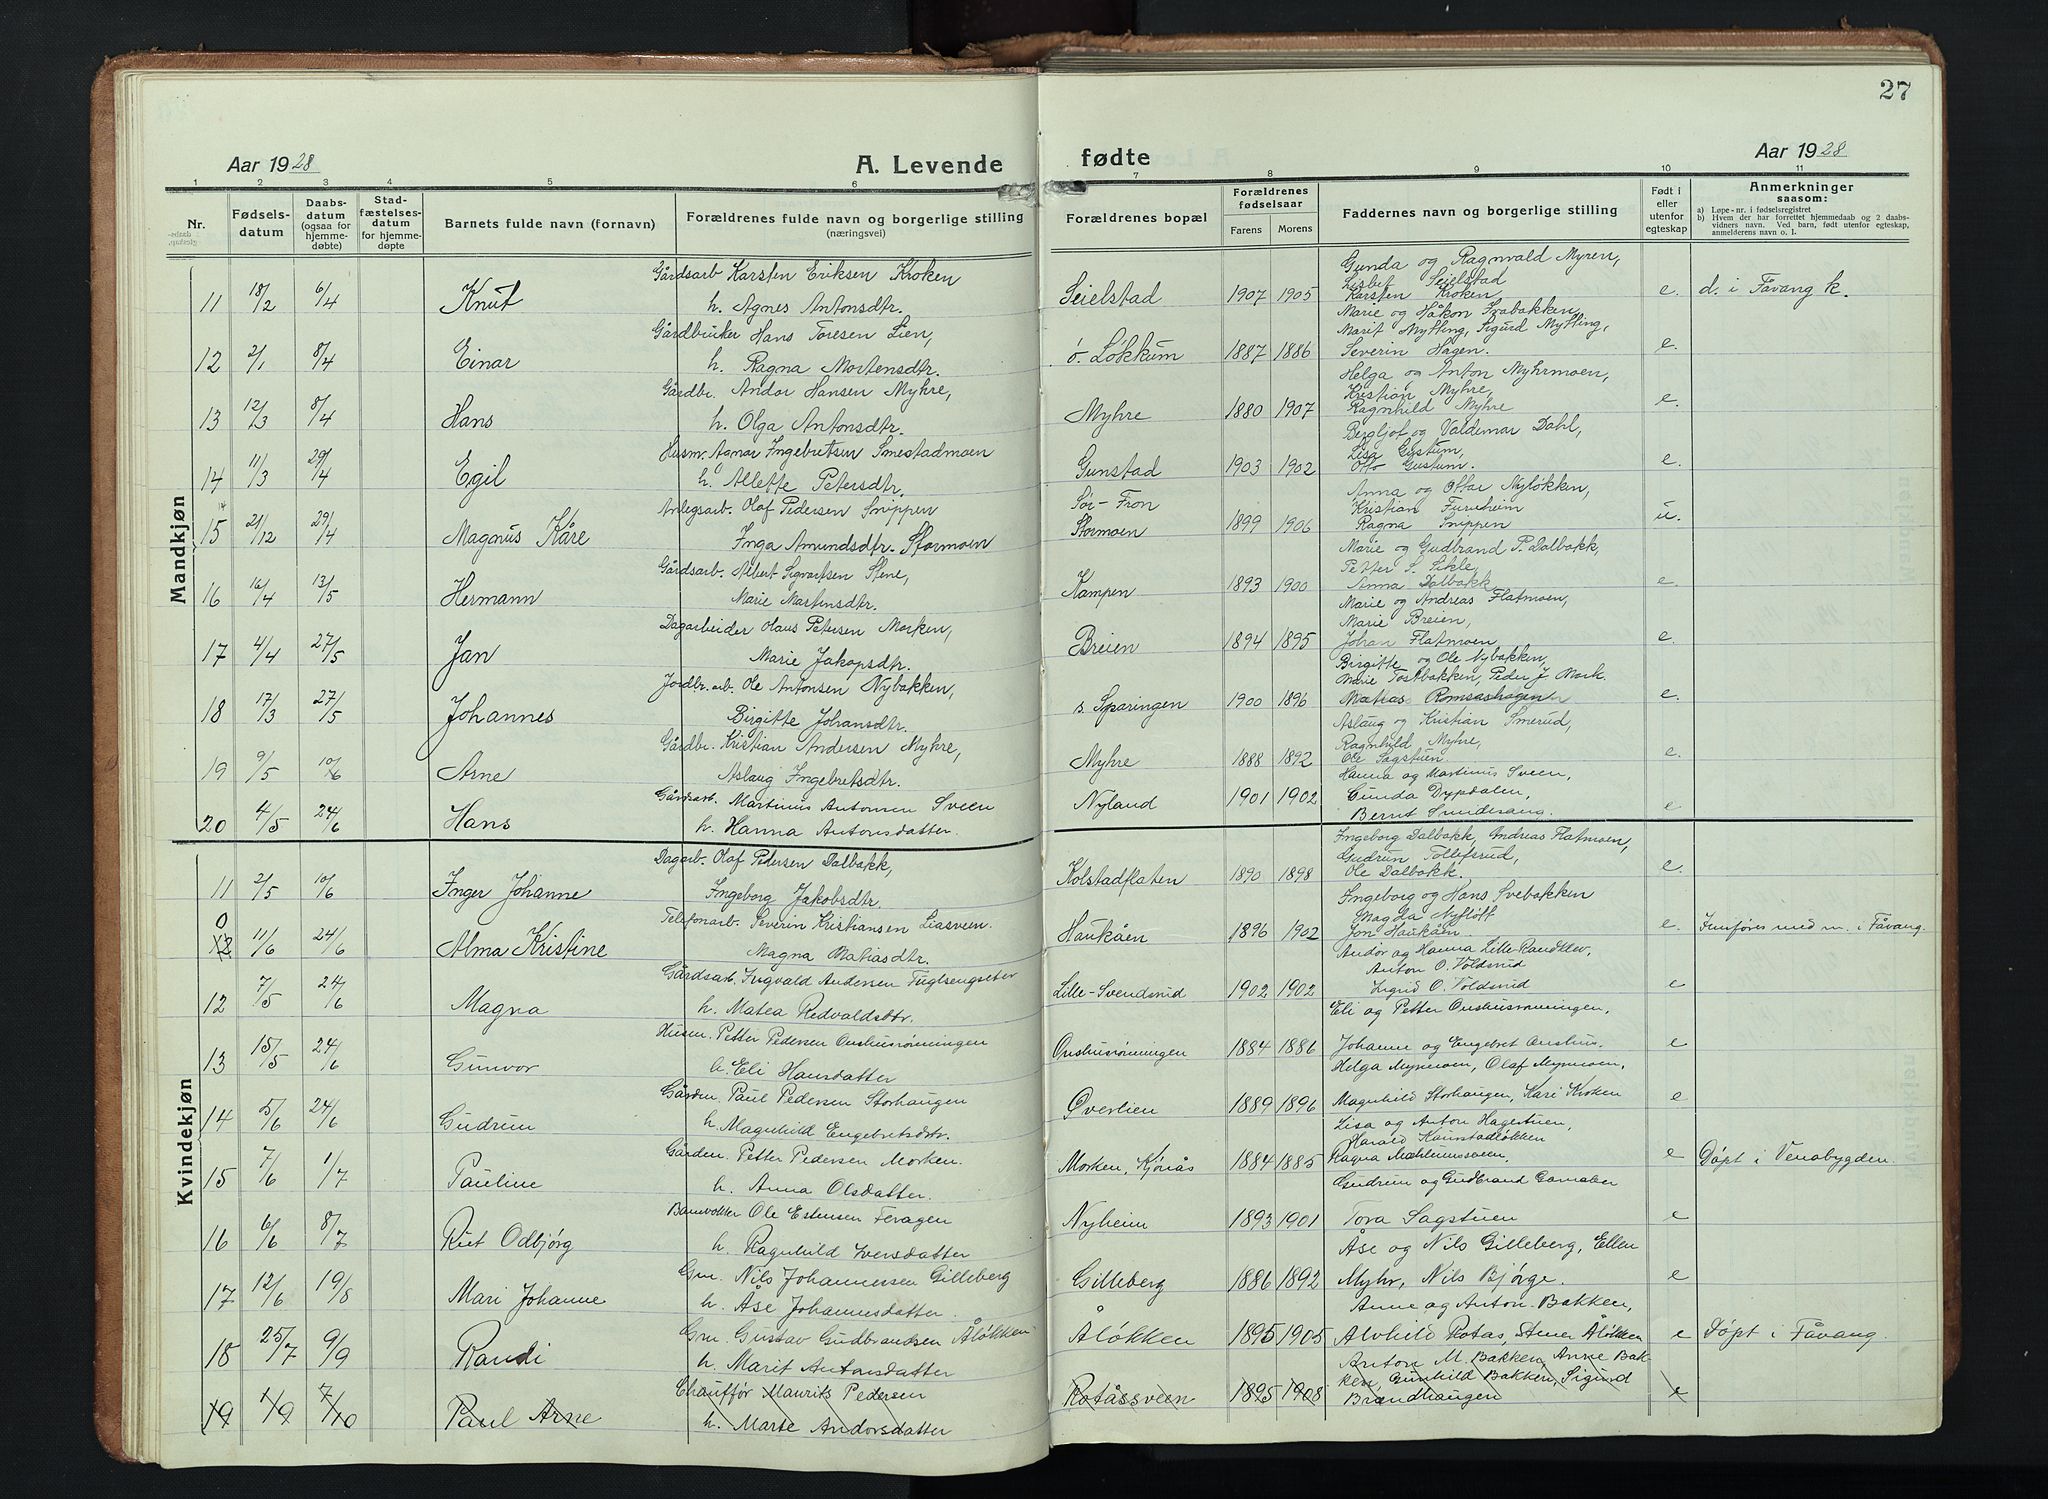 27
Aar 1928
A. Levende
fødte
Aar 1928
1 2 3 4 5 6 7 8 9 10 11
Nr.
Fødsels-
datum
Daabs-
datum
(ogsaa for
hjemme-
døbte)
Stad-
fæstelses-
datum
for hjemme-
døpte
Barnets fulde navn (fornavn)
Forældrenes fulde navn og borgerlige stilling
(næringsvei)
Forældrenes bopæl
Forældrenes
fødselsaar
Farens
Morens
Faddernes navn og borgerlige stilling
Født i
eller
utenfor
egteskap
Anmerkninger
saasom:
a) Løpe-nr. i fødselsregistret
b) Hvem der har forrettet hjemmedaab og 2 daabs-
vidners navn. Ved barn, født utenfor egteskap,
anmelderens navn o. l.
Mandkjøn
Gårdsarb Karsten Eriksen Kroken
Gunda og Ragnvald Myren,
Lisbet Seielstad
11 18/2 6/4 Knut h. Agnes Antonsdtr. Seielstad 1907 1905 Karsten Kroken, e. d. i Fåvang k.
Marie og Håkon Svabakken,
Gårdbruker Hans Toresen Lien,
Marit Mytting, Sigurd Mytting,
12 2/1 8/4 Einar h. Ragna Mortensdtr. ö. Løkkum 1887 1886 Severin Hagen. e.
Gårdbr. Andor Hansen Myhre,
Helga og Anton Myhrmoen,
Kristian Myhre,
13 12/3 8/4 Hans h. Olga Antonsdtr. Myhre 1880 1907 Ragnhild Myhre e.
Husm. Agnar Ingebretsen Smestadmoen
Bergljot og Valdemar Dahl,
Lisa Gustum,
14 11/3 29/4 Egil h. Allette Petersdtr. Gunstad 1903 1902 Otto Gustum. e.
Anlegsarb. Olaf Pedersen Snippen
Sör-Fron
Anna og Ottar Nyløkken,
Kristian Furuheim
15 21/12 29/4 Magnus Kåre Inga Amundsdtr. Stormoen Stormoen 1899 1906 Ragna Snippen u.
Gårdsarb. Albert Sigvartsen Stene,
Marie og Gudbrand P. Dalbakk,
Petter S. Sikle,
16 16/4 13/5 Hermann Marie Martensdtr. Kampen 1893 1900 Anna Dalbakk e.
Dagarbeider Olaus Petersen Morken,
Marie og Andreas Flatmoen,
Marie Breien,
17 4/4 27/5 Jan Marie Jakopsdtr. Breien 1894 1895 Johan Flatmoen, e.
Jordbr.arb. Ole Antonsen Nybakken,
Birgitte og Ole Nybakken,
Marie Tostbakken, Peder J. Mork.
18 17/3 27/5 Johannes Birgitte Johansdtr. s. Sparingen 1900 1896 Matias Romsashagen e.
Gårdbr. Kristian Andersen Myhre,
Aslaug og Kristian Smerud,
Ragnhild Myhre,
19 9/5 10/6 Arne Aslaug Ingebretsdtr. Myhre 1888 1892 Ole Sagstuen. e.
Gårdsarb. Martinus Antonsen Sveen
Hanna og Martinus Sveen,
20 4/5 24/6 Hans h. Hanna Antonsdatter. Nyland 1901 1902 Gunda Dypdalen,
Berut Sundesang. e
Kvindekjøn
Dagarb. Olaf Petersen Dalbakk,
Ingeborg Dalbakk, Andreas Flatmoen,
Gudrun Tollefsrud,
11 2/5 10/6 Inger Johanne Ingeborg Jakobsdtr. Kolstadflaten 1890 1898 Ole Dalbakk. e.
Telefonarb. Severin Kristiansen Liasveen.
Ingeborg og Hans Svebakken
Magda Nyfløtt
0 12 11/6 24/6 Alma Kristine Magna Matiasdtr. Haukåen 1896 1902 Jon Haukåen. e. Innføres med n. i Fåvang.
Gårdsarb. Ingvald Andersen Fuglsengseter
Andor og Hanna Lille-Randklev,
Anton O. Voldsrud
12 7/5 24/6 Magna h. Matea Redvaldsdtr. Lille-Svendsrud 1902 1902 Ingrid O. Voldsrud e
Husm. Petter Pedersen Onshusrönningen
Eli og Petter Onshusrönningen,
13 15/5 24/6 Gunvor h. Eli Hansdatter Onshusrönningen 1884 1886 Johanne og Engebret Onshus. e
Gårdm. Paul Pedersen Storhaugen
Helga Myrmoen, Olaf Myrmoen,
14 5/6 24/6 Gudrun h. Magnhild Engebretsdtr. Överlien 1889 1896 Magnhild Storhaugen, Kari Kroken e
Gårdm. Petter Pedersen Morken.
Lisa og Anton Hagestuen,
Harald Kaunstadløkken
15 7/6 1/7 Pauline h. Anna Olsdatter. Morken, Kjönås 1884 1885 Ragna Mæhlumsveen, e Döpt i Venabygden.
Banevokter Ole Estensen Feragen
Gudrun og Gudbrand Gamaber
16 6/6 8/7 Rut Odbjörg h. Ragnhild Iversdatter Nyheim 1893 1901 Tora Sagstuen e
Gm. Nils Johannessen Gilleberg
Åse og Nils Gilleberg, Ellen
17 12/6 19/8 Mari Johanne h. Åse Johannesdatter. Gilleberg 1886 1892 Myhr, Nils Bjørge. e
Gm. Gustav Gudbrandsen Åløkken
Anne og Anton Bakken,
18 25/7 9/9 Randi h. Marit Antonsdatter Åløkken 1895 1905 Alvhild Rotås, Stener Åløkken e Döpt i Fåvang.
Chauffør Maurits Pedersen
Anton M. Bakken, Anne Bak-
ken, Gunhild Bakken, Sigurd
19 1/9 7/10 Paul Arne h. Marte Andorsdatter Rotåssveen 1895 1908 Brandhaugen e